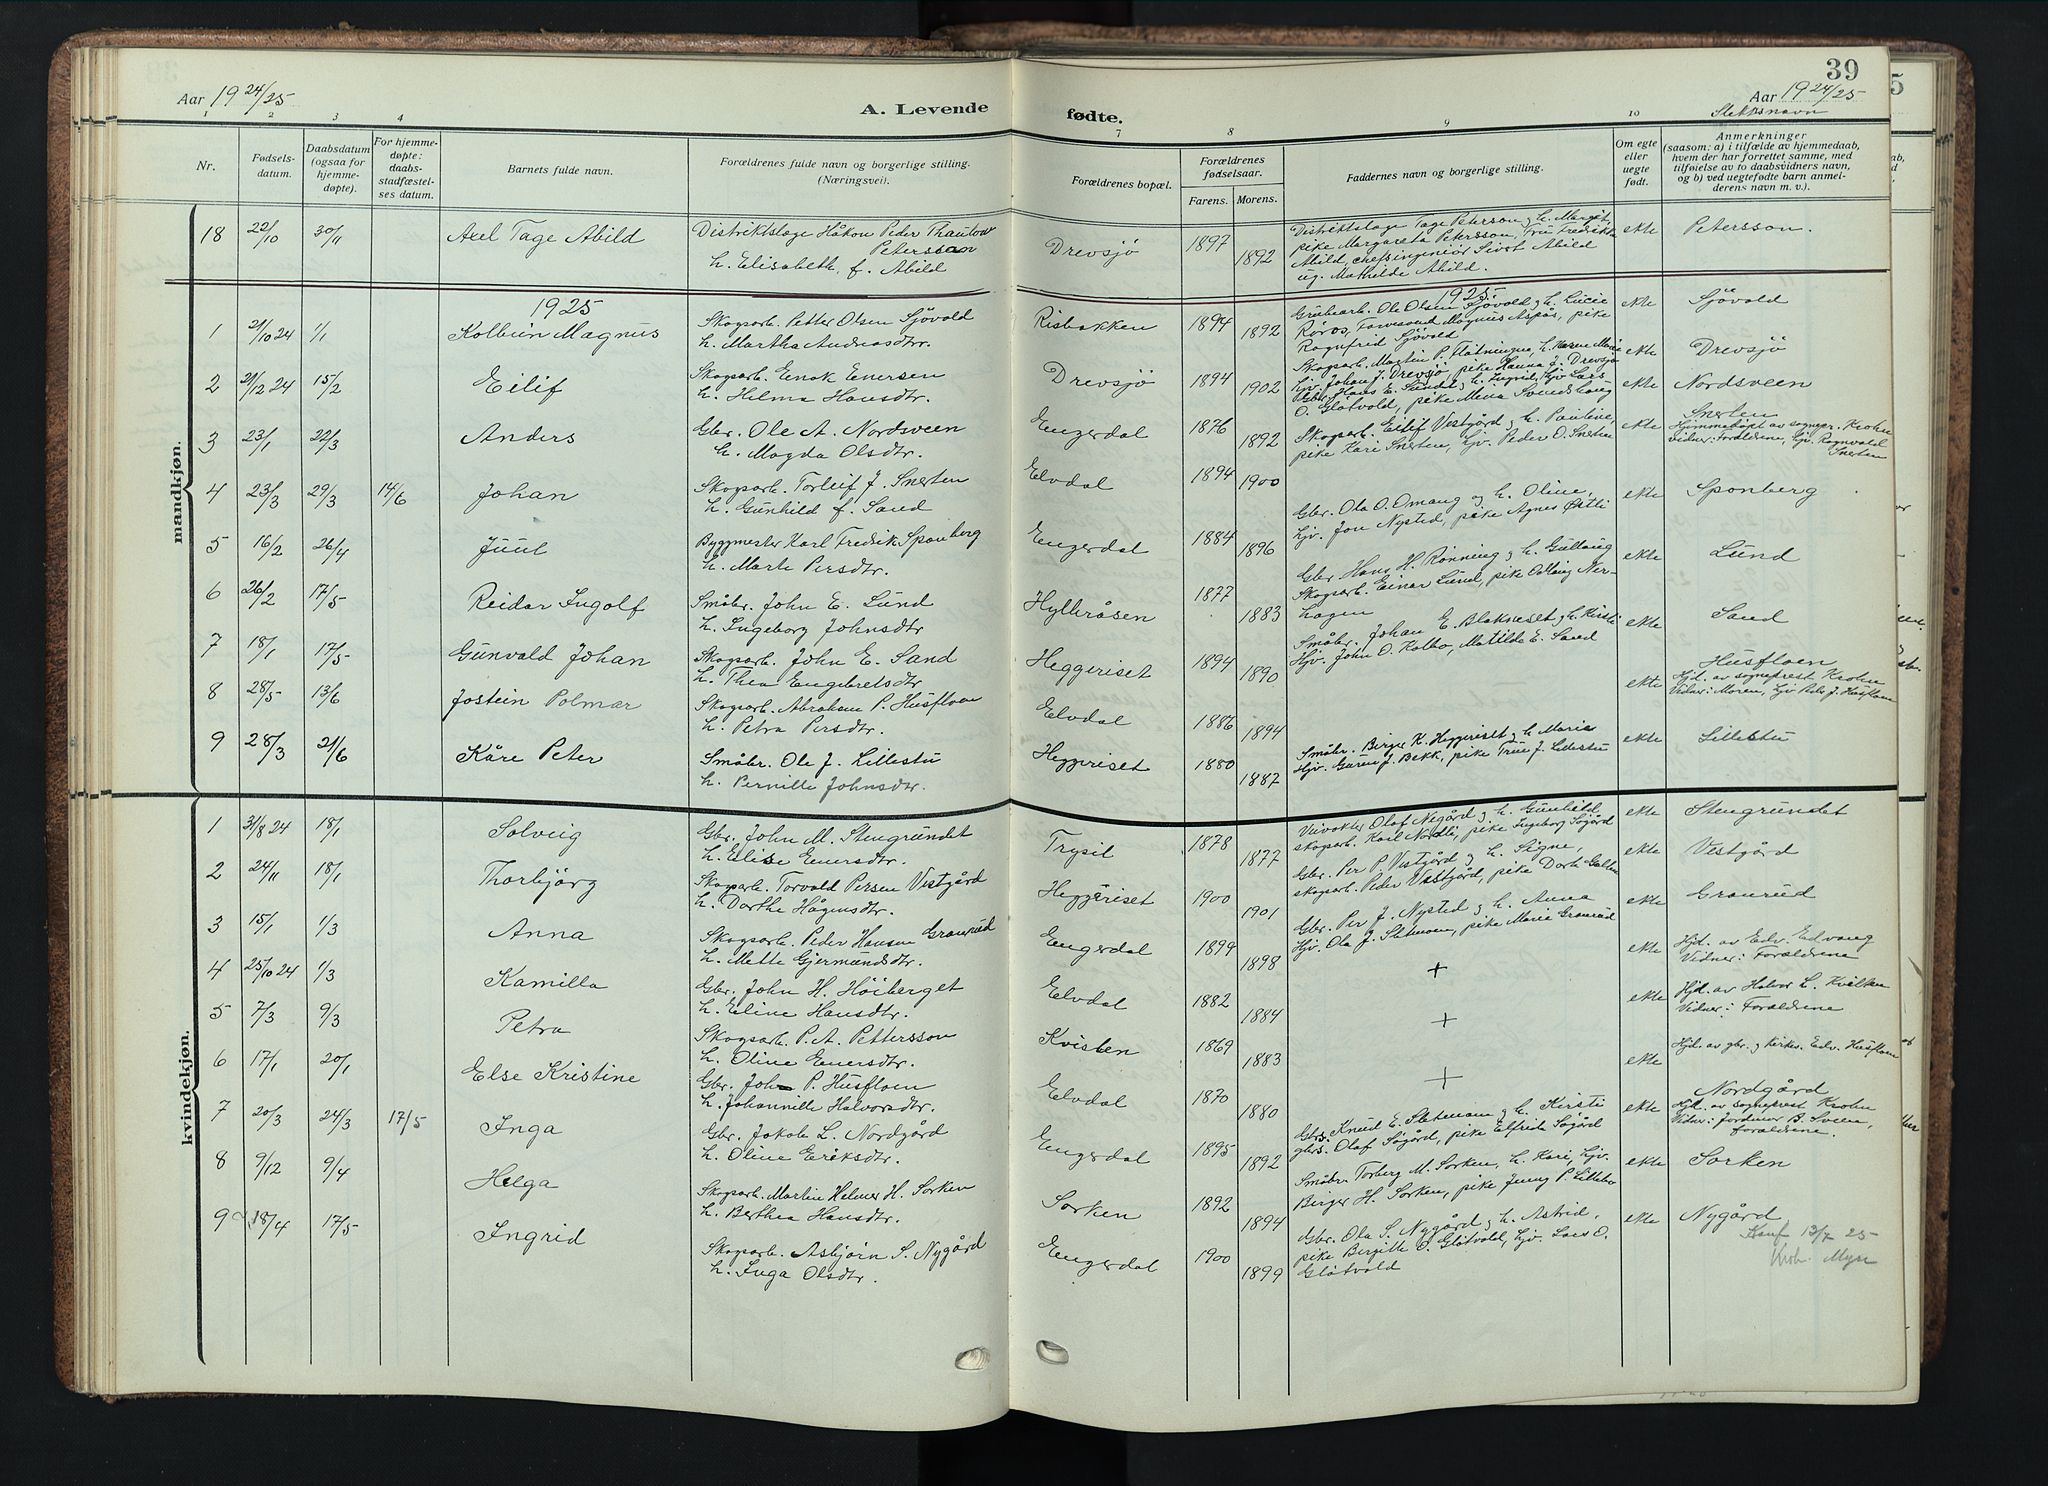 39
Aar 1924/25
A. Levende
fødte.
Aar 1924/25
Slektsnavn
1 2 3 4 7 8 9 10
Nr.
Fødsels-
datum.
Daabsdatum
(ogsaa for
hjemme-
døpte).
For hjemme-
døpte:
daabs-
stadfæstel-
ses datum.
Barnets fulde navn.
Forældrenes fulde navn og borgerlige stilling.
(Næringsvei).
Forældrenes bopæl.
Forældrenes
fødselsaar.
Farens. Morens.
Faddernes navn og borgerlige stilling.
Om egte
eller
uegte
født.
Anmerkninger
(saasom: a) i tilfælde av hjemmedaab,
hvem der har forrettet samme, med
tilføielse av to daabsvidners navn,
og b) ved uegtefødte barn anmel-
derens navn m. v.).
mandkjøn.
18 22/10 30/11 Axel Tage Abild
Distriktslæge Håkon Peder Thaulow
Petersson
h. Elisabeth, f. Abild
Drevsjö 1897 1892
Distriktslæge Tage Petersson og h. Margit,
pike Margareta Petersson, Fru Fredrikke
Abild, chefsingeniör Sivert Abild
ug. Mathilde Abild.
ekte Petersson.
1925
1925.
1 21/10 24 1/1 Kolbein Magnus
Skogsarb. Petter Olsen Sjövold
h. Martha Andreasdtr.
Risbakken 1894 1892
Grubearb. Ole Olsen Sjövold og h. Lucie
Röros, Magnus Aspås, pike
Ragnfrid Sjövold
ekte Sjövold
2 21/12 24 15/2 Eilif
Skogsarb. Enok Enersen
h. Hilma Hansdtr.
Drevsjö 1894 1902
Skogsarb. Martin P. Flötningmo, h. Karen Marie
hjv. Johan J. Drevsjö, pike Hanna J. Drevsjö
ekte Drevsjö
3 23/1 22/3 Anders
Gbr. Ole A. Nordsveen
h. Magda Olsdtr.
Engerdal 1876 1892
Gbr. Hans E. Sundet og h. Ingrid, hjv Lars
O. Glötvold, pike Mina Svendshaug
ekte Nordsveen
4 23/3 29/3 14/6 Johan
Skogsarb. Torleif J. Snerten
h. Gunhild f. Sand
Elvdal 1894 1900
Skogsarb. Eilif Vestgård og h. Pauline,
pike Kari Snerten, hjv. Peder O. Snerten
ekte Snerten
Hjemmedöpt av sognepr. Krohn
Vidner: Foreldrene, hjv. Ragnvald
Snerten
5 16/2 26/4 Juul
Byggmester Karl Fredrik Sponberg
h. Marte Persdtr.
Engerdal 1884 1896
Gbr. Ola O. Omang og h. Oline,
hjv. Jon Nysted, pike Agnes Östli
ekte Sponberg
6 26/2 17/5 Reidar Ingolf
Småbr. John E. Lund
h. Ingeborg Johnsdtr
Hylleråsen 1877 1883
Gbr Hans H. Rönning og h. Gullaug
Skogsarb. Einar Lund, pike Odlaug Ner-
hagen
ekte Lund
7 18/1 17/5 Gunvald Johan
Skogsarb. John E. Sand
h. Thea Engebretsdtr
Heggeriset 1894 1890
Småbr. Johan E. Blakneset og h. Kirsti
Hjv. John O. Kolbo, Matilde E. Sand
ekte Sand
8 28/5 13/6 Jostein Polmar
Skogsarb. Abraham P. Husfloen
h. Petra Persdtr.
Elvdal 1886 1894
ekte Husfloen
Hjd. av sogneprest Krohn
Vidner: Moren, hjv Peder J. Husfloen
9 28/3 21/6 Kåre Peter
Småbr. Ole J. Lillestu
h. Pernille Johnsdtr.
Heggeriset 1880 1887
Småbr. Birger K. Heggeriset og h. Marie
Hjv. Guren J. Bekk, pike True J. Lillestu
ekte Lillestu
kvindekjøn.
1 31/8 24 18/1 Solveig
Gbr. John M. Stengrundet
h. Elise Enersdtr.
Trysil 1878 1877
Veivokter Olaf Negård og h. Gunhild,
skogsarb. Karl Nordli, pike Ingeborg Sögård
ekte Stengrundet
2 24/11 18/1 Thorbjörg
Skogsarb. Torvald Persen Vestgård
h. Dorthe Hågensdtr.
Heggeriset 1900 1901
Gbr. Per P. Vestgård og h. Signe,
skogsarb. Peder Vestgård, pike Dorte Galten
ekte Vestgård
3 15/1 1/3 Anna
Skogsarb. Peder Hansen Granrud
h. Mette Gjermundsdtr.
Engerdal 1899 1898
Gbr. Per J. Nysted og h. Anna
Hjv. Ola J. Sletmoen, pike Marie Granrud
ekte Granrud
4 25/10 24 1/3 Kamilla
Gbr. John H. Höiberget
h. Eline Hansdtr.
Elvdal 1882 1884
+
ekte Hjd. av Edv. Edvang
Vidner: Foreldrene
5 7/3 9/3 Petra
Skogsarb. P. A. Pettersson
h. Oline Enersdtr.
Kvisten 1869 1883
+
ekte Hjd. av Halvor L. Kvilten
Vidner: Foreldrene
6 17/1 20/1 Else Kristine
Gbr. John P. Husfloen
h. Johannille Halvorsdtr.
Elvdal 1870 1880
+
ekte Hjd. av gbr. og kirkes. Edv. Husfloen
7 20/3 24/3 17/5 Inga
Gbr. Jakob L. Nordgård
h. Oline Eriksdtr.
Engerdal 1895 1892
Gbrs. Knud E. Sletmoen og h. Kirsti
gbrs. Olaf Sögård, pike Elfrida Sögård
ekte Nordgård
Hjd. av sogneprest Krohn
Vidner: Jordmor B. Sveen,
foreldrene.
8 9/12 9/4 Helga
Skogsarb. Martin Helmer H. Sorken
h. Berthea Hansdtr.
Sorken 1892 1894
Småbr Torberg M. Sorken, h. Kari, hjv.
Birger H. Sorken, pike Jenny P. Lillebo
ekte Sorken
9 18/4 17/5 Ingrid
Skogsarb. Asbjörn S. Nygård
h. Inga Olsdtr.
Engerdal 1900 1899
Gbr. Ola S. Nygård og h. Astrid,
pike Birgitte O. Glötvold, hjv. Lars O.
Glötvold
ekte Nygård
Konf 13/7 25